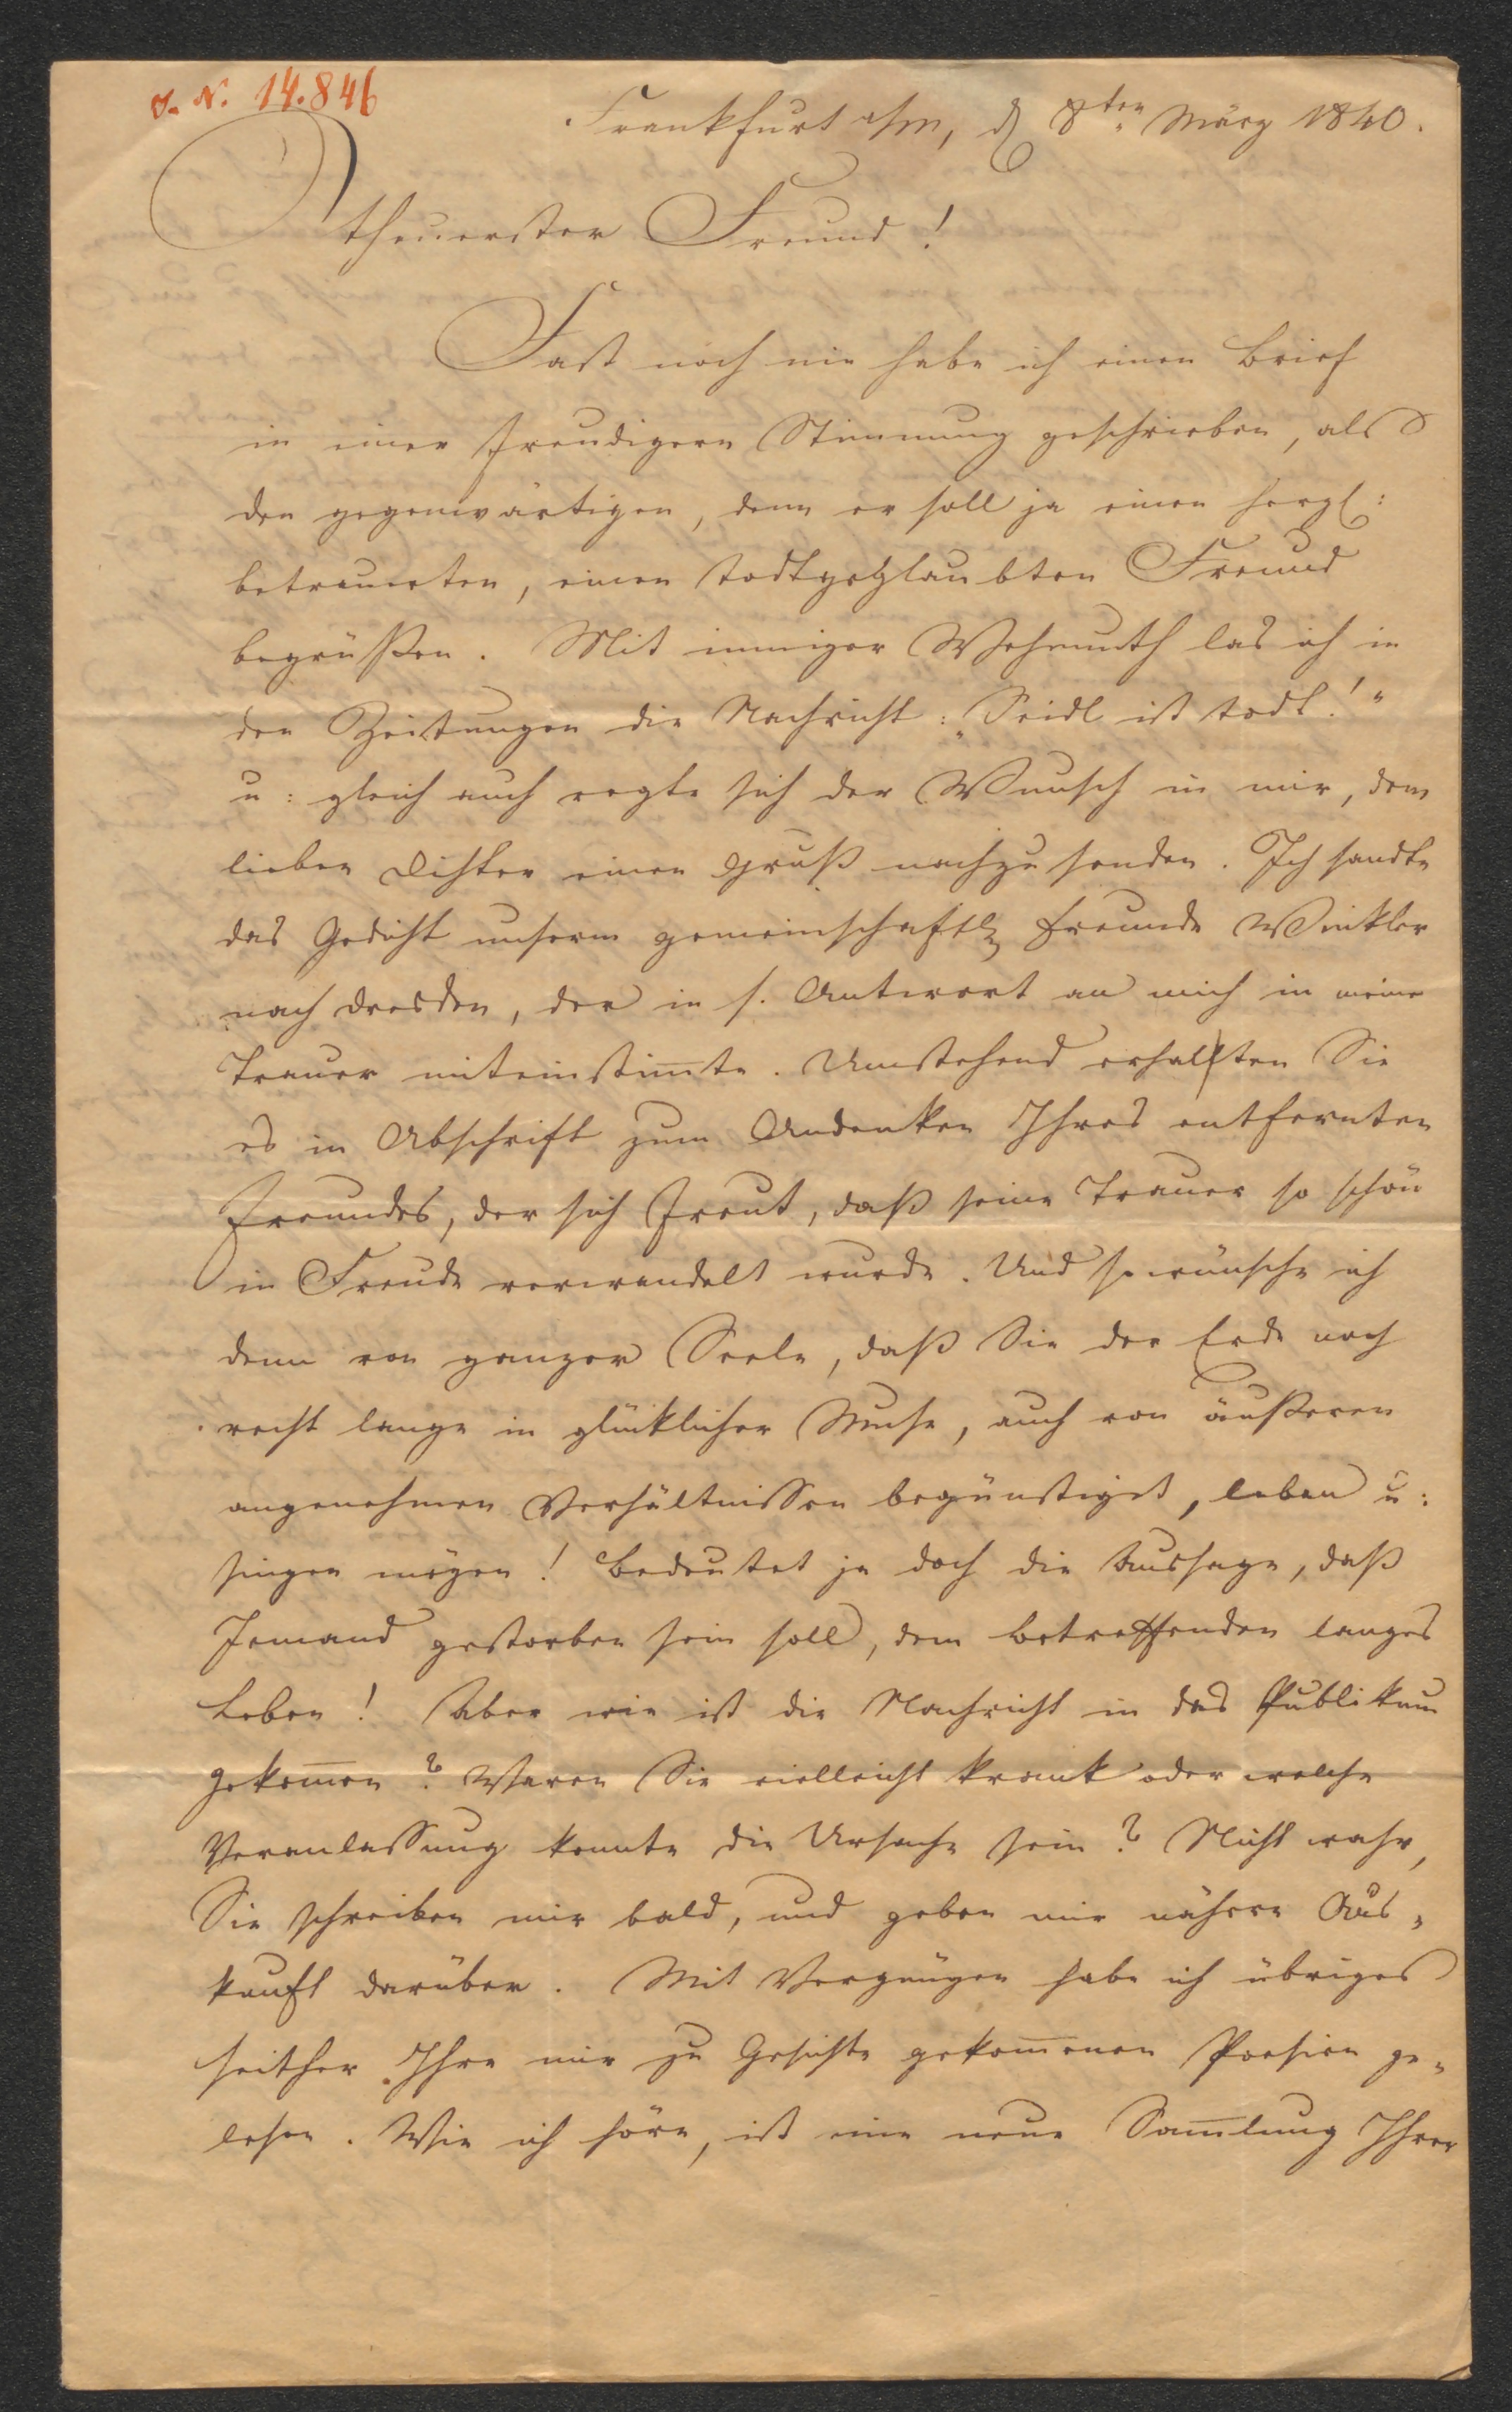 J. N. 14.846
Frankfurt a/m, d 8ten März 1840.
O theuerster Freund!
Fast noch nie habe ich einen Brief
in einer freudigern Stimmung geschrieben, als
den gegenwärtigen, denn er soll ja einen herzl:
betrauerten, einen todtgeglaubten Freund
begrüßen. Mit inniger Wehmuth las ich in
den Zeitungen die Nachricht: „Seidl ist todt!“
u: gleich auch regte sich der Wunsch in mir, dem
lieben Dichter einen Gruß nachzusenden. Ich sandte
das Gedicht unserm gemeinschaftl Freunde Winkler
nach Dresden, der in s. Antwort an mich in meine
Trauer miteinstim̅te. Umstehend erhalten Sie
es in Abschrift zum Andenken Ihres entfernten
Freundes, der sich freut, daß seine Trauer so schön
in Freude verwandelt wurde. Und so wünsche ich
denn von ganzer Seele, daß Sie der Erde noch
recht lange in glücklicher Muse, auch von äußeren
angenehmen Verhältnissen begünstiget, leben u:
singen mögen! Bedeutet ja doch die Aussage, daß
Jemand gestorben sein soll, dem Betreffenden langes
Leben! Aber wie ist die Nachricht in das Publikum
gekom̅en? Waren Sie vielleicht krank oder welche
Veranlassung konnte die Ursache sein? Nicht wahr,
Sie schreiben mir bald, und geben mir nähere Aus„
kunft darüber. Mit Vergnügen habe ich übriges
seither Ihre mir zu Gesichte gekom̅enen Poesien ge„
lesen. Wie ich höre, ist eine neue Sam̅lung Ihrer